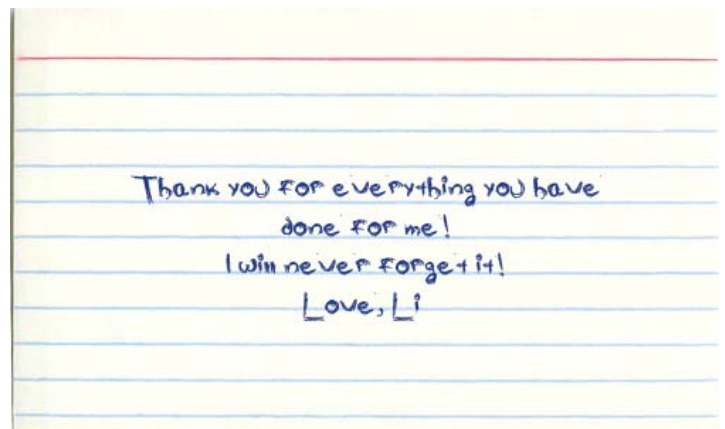 Thank you for everything you have
done for me!
I will never forget it!
Love, Li